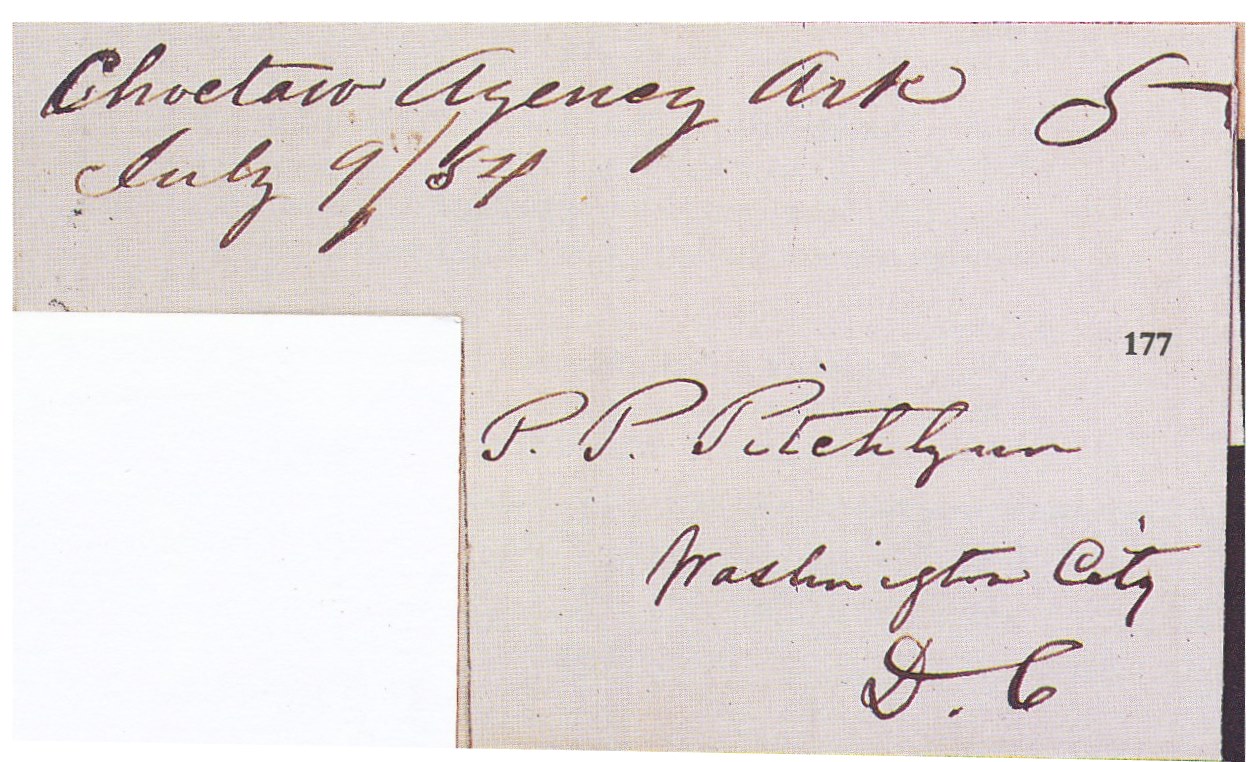 Choctaw Agency Ark 5
July 9/54
177
P. P. Pitchlynn
Washington City
D. C